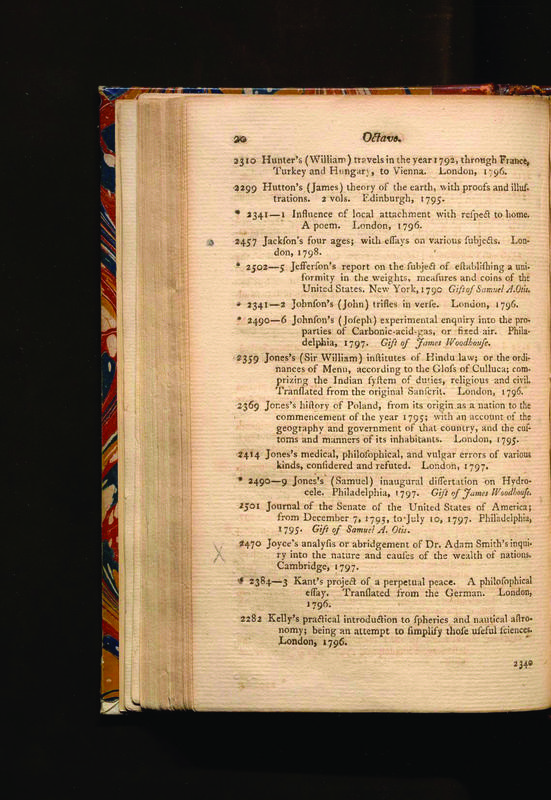 20 Octavo.
2310 Hunter's (William) travels in the year 1792, through France,
Turkey and Hungary, to Vienna. London, 1796.
2299 Hutton's (James) theory of the earth, with proofs and illuſ-
trations. 2 vols. Edinburgh, 1795.
* 2341—1 Influence of local attachment with reſpect to home.
A poem. London, 1796.
2457 Jackſon's four ages; with eſſays on various ſubjects. Lon-
don, 1798.
* 2502—5 Jefferſon's report on the ſubject of eſtabliſhing a uni-
formity in the weights, meaſures and coins of the
United States. New York, 1790 Gift of Samuel A. Otis.
* 2341—2 Johnſon's (John) trifles in verſe. London, 1796.
* 2490—6 Johnſon's (Joſeph) experimental enquiry into the pro-
parties of Carbonic-acid-gas, or fixed air. Phila-
delphia, 1797. Gift of James Woodhouſe.
2359 Jones's (Sir William) inſtitutes of Hindu law; or the ordi-
nances of Menu, according to the Gloſs of Culluca; com-
prizing the Indian ſyſtem of duties, religious and civil.
Tranſlated from the original Sanſcrit. London, 1796.
2369 Jones's hiſtory of Poland, from its origin as a nation to the
commencement of the year 1795; with an account of the
geography and government of that country, and the cuſ-
toms and manners of its inhabitants. London, 1795.
2414 Jones's medical, philoſophical, and vulgar errors of various
kinds, conſidered and refuted. London, 1797.
* 2490—9 Jones's (Samuel) inaugural diſſertation on Hydro-
cele. Philadelphia, 1797. Gift of James Woodhouſe.
2501 Journal of the Senate of the United States of America;
from December 7, 1795, to July 10, 1797. Philadelphia,
1795. Gift of Samuel A. Otis.
2470 Joyce's analyſis or abridgement of Dr. Adam Smith's inqui-
ry into the nature and cauſes of the wealth of nations.
Cambridge, 1797.
* 2384—3 Kant's project of a perpetual peace. A philoſophical
eſſay. Tranſlated from the German. London,
1796.
2282 Kelly's practical introduction to ſpherics and nautical aſtro-
nomy; being an attempt to ſimplify thoſe uſeful ſciences.
London, 1796.
2340